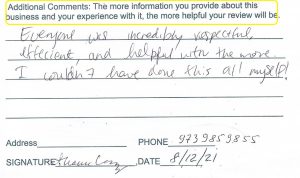 Additional Comments: The more information you provide about this
business and your experience with it, the more helpful your review will be.
Everyone was incredibly respectful,
effecient, and helpful with the move.
I couldn't have done this all myself!
Address PHONE 9739859855
SIGNATURE DATE 8/12/21